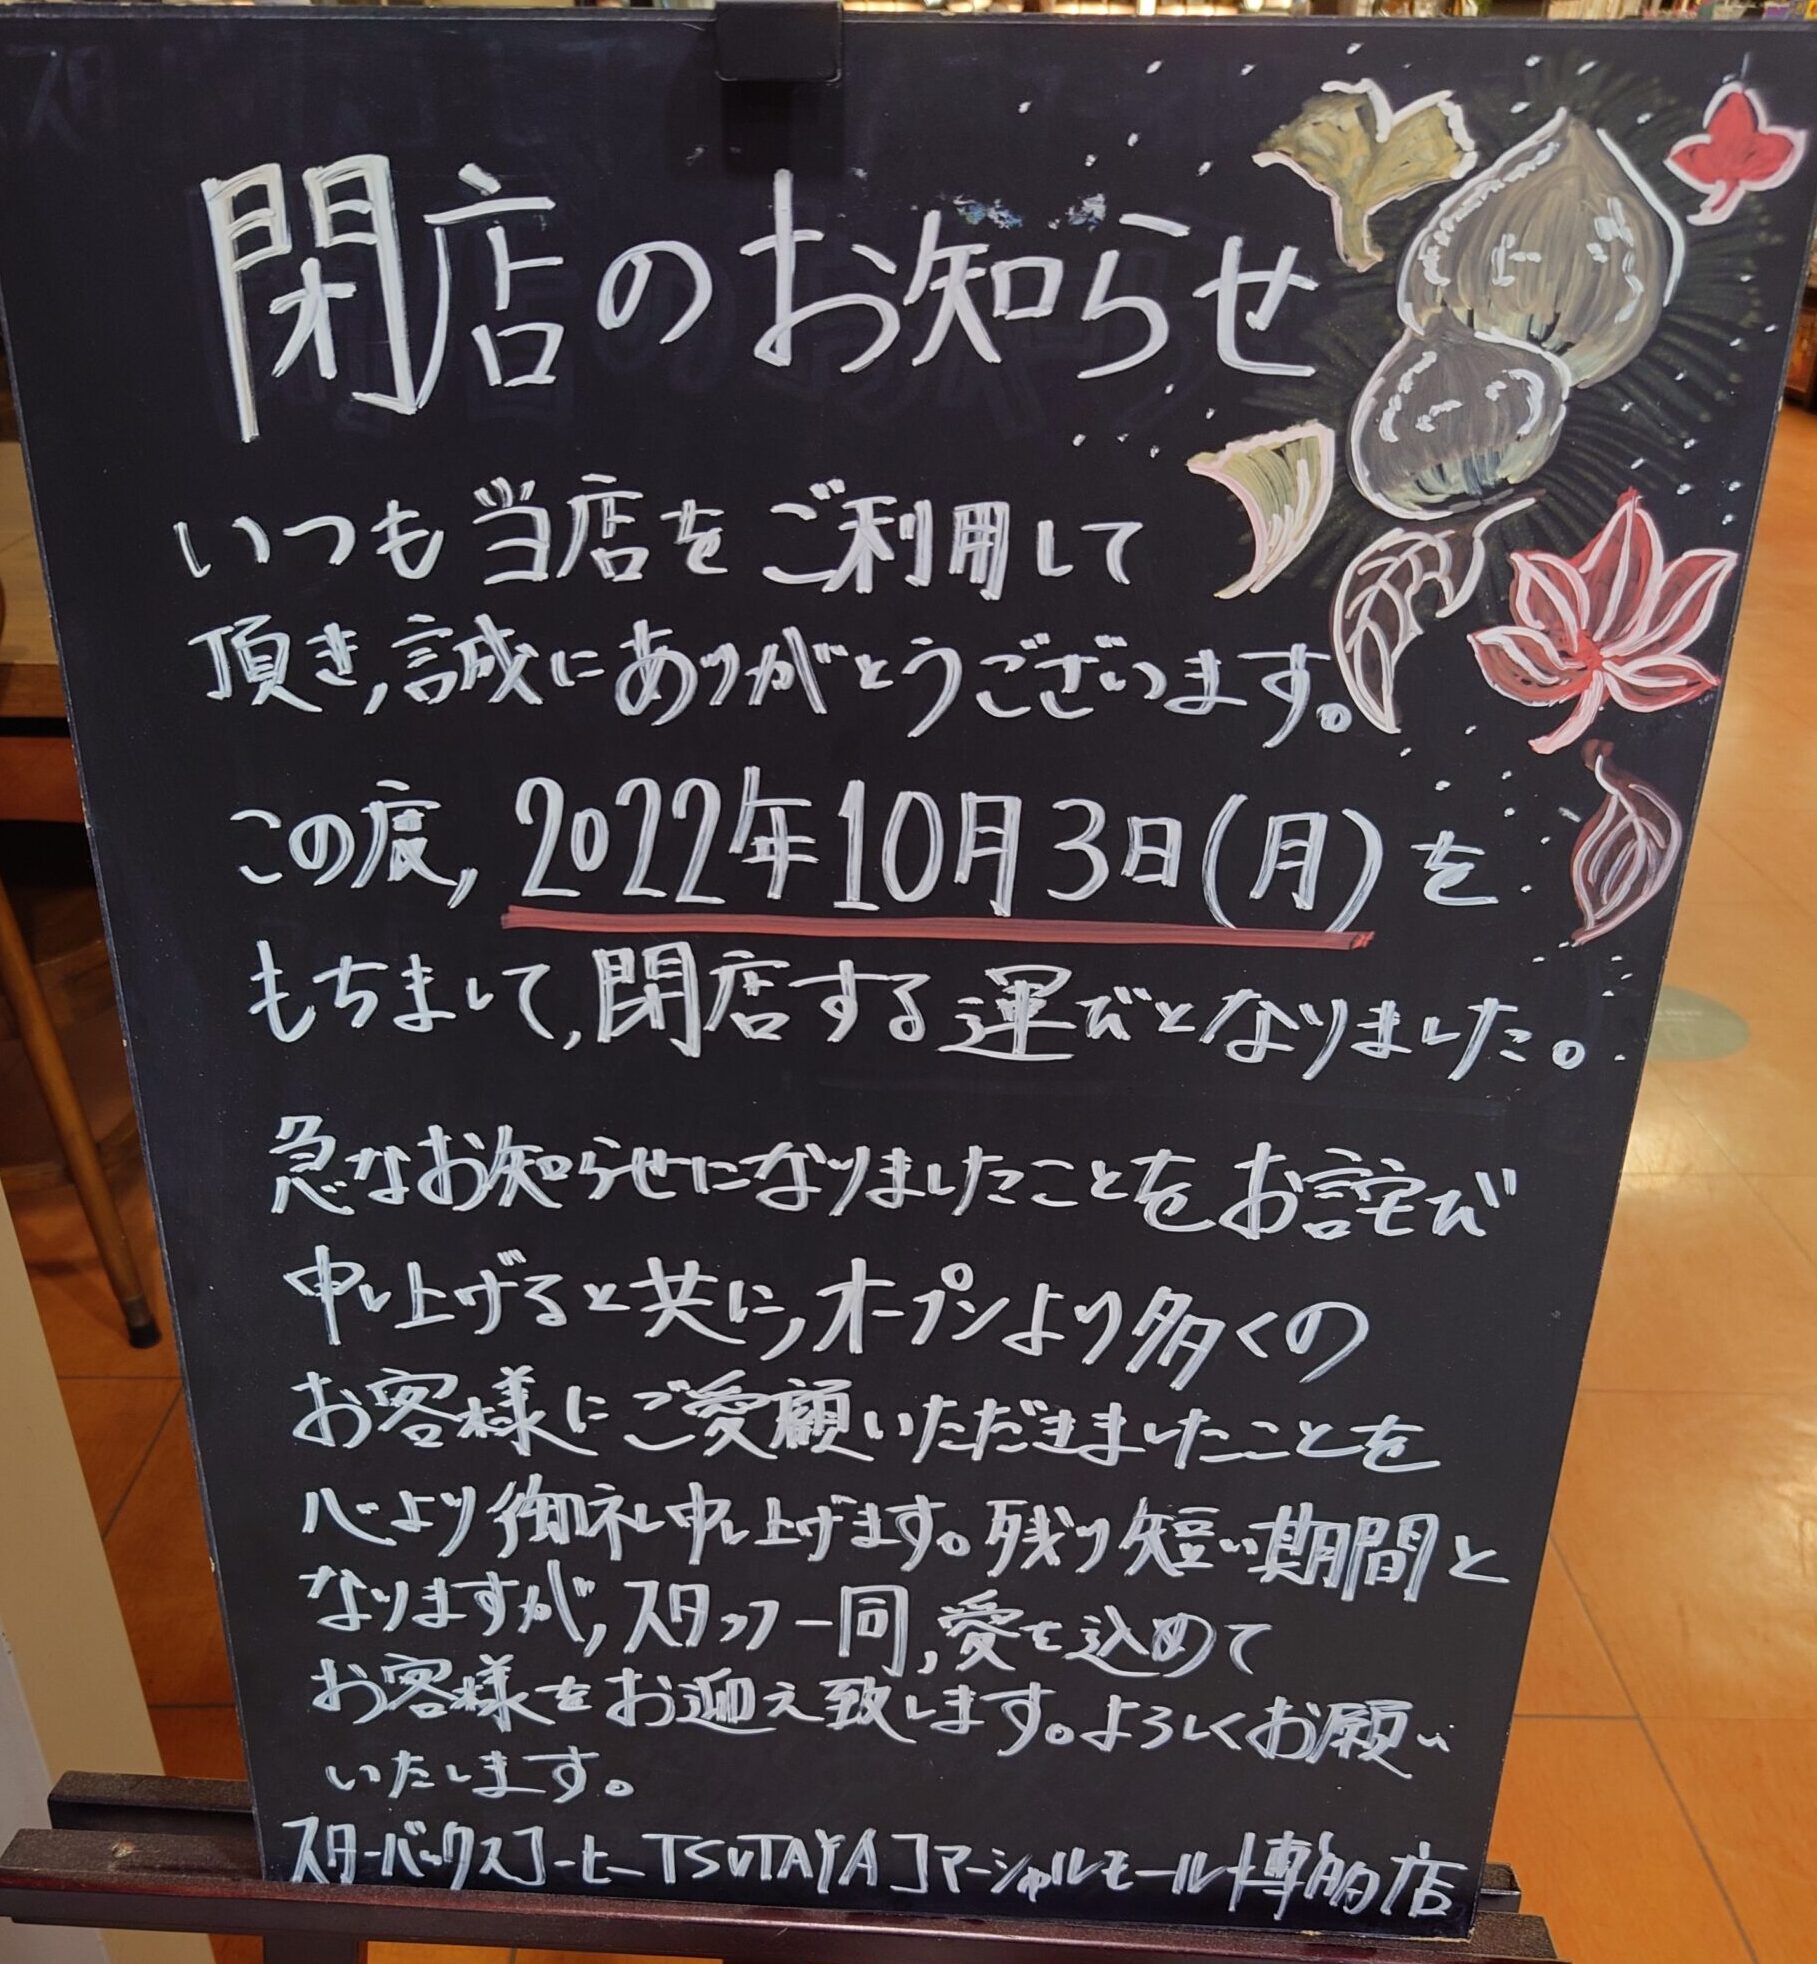 閉店のお知らせ
いつも当店をご利用して
頂き,誠にありがとうございます。
この度,2022年10月3日(月)を
もちまして,閉店する運びとなりました。
急なお知らせになりましたことをお詫び
申し上げると共に,オープンより多くの
お客様にご愛顧いただきましたことを
心より御礼申し上げます。残り短い期間と
なりますが,スタッフ一同,愛を込めて
お客様をお迎え致します。よろしくお願い
いたします。
スターバックスコーヒーTSUTAYAコマーシャルモール博多店